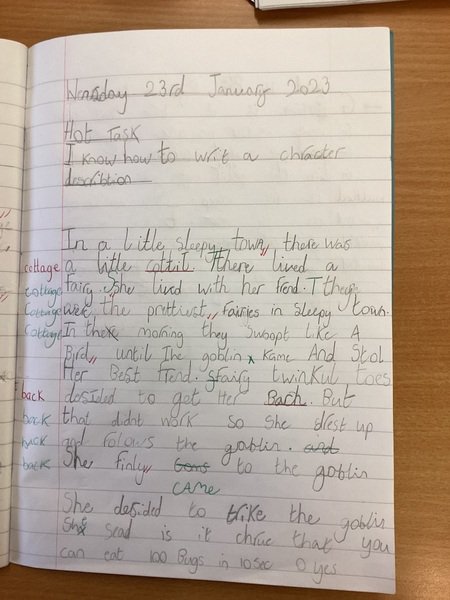 Wensday 23rd January 2023
Hot Task
I know how to writ a chracter
describtion
In a Little sleepy town,, there was
cottage a little cottil There lived a
cottage fairy. She lived with her frend. They
cottage wer the prettiust,, fairies in sleepy town.
cottage In the morning they swoopt Like A
Bird,, until The goblin kame And Stol
Her Best frend. Fairy twinkul toes
back desided to get Her Bach. But
back that didnt work so She drest up
back and folows the goblin. and
back She finly,, to the goblin
CAME
She desided to trike the goblin
She sead is it chrue that you
can eat 100 Bugs in 10 sec O yes